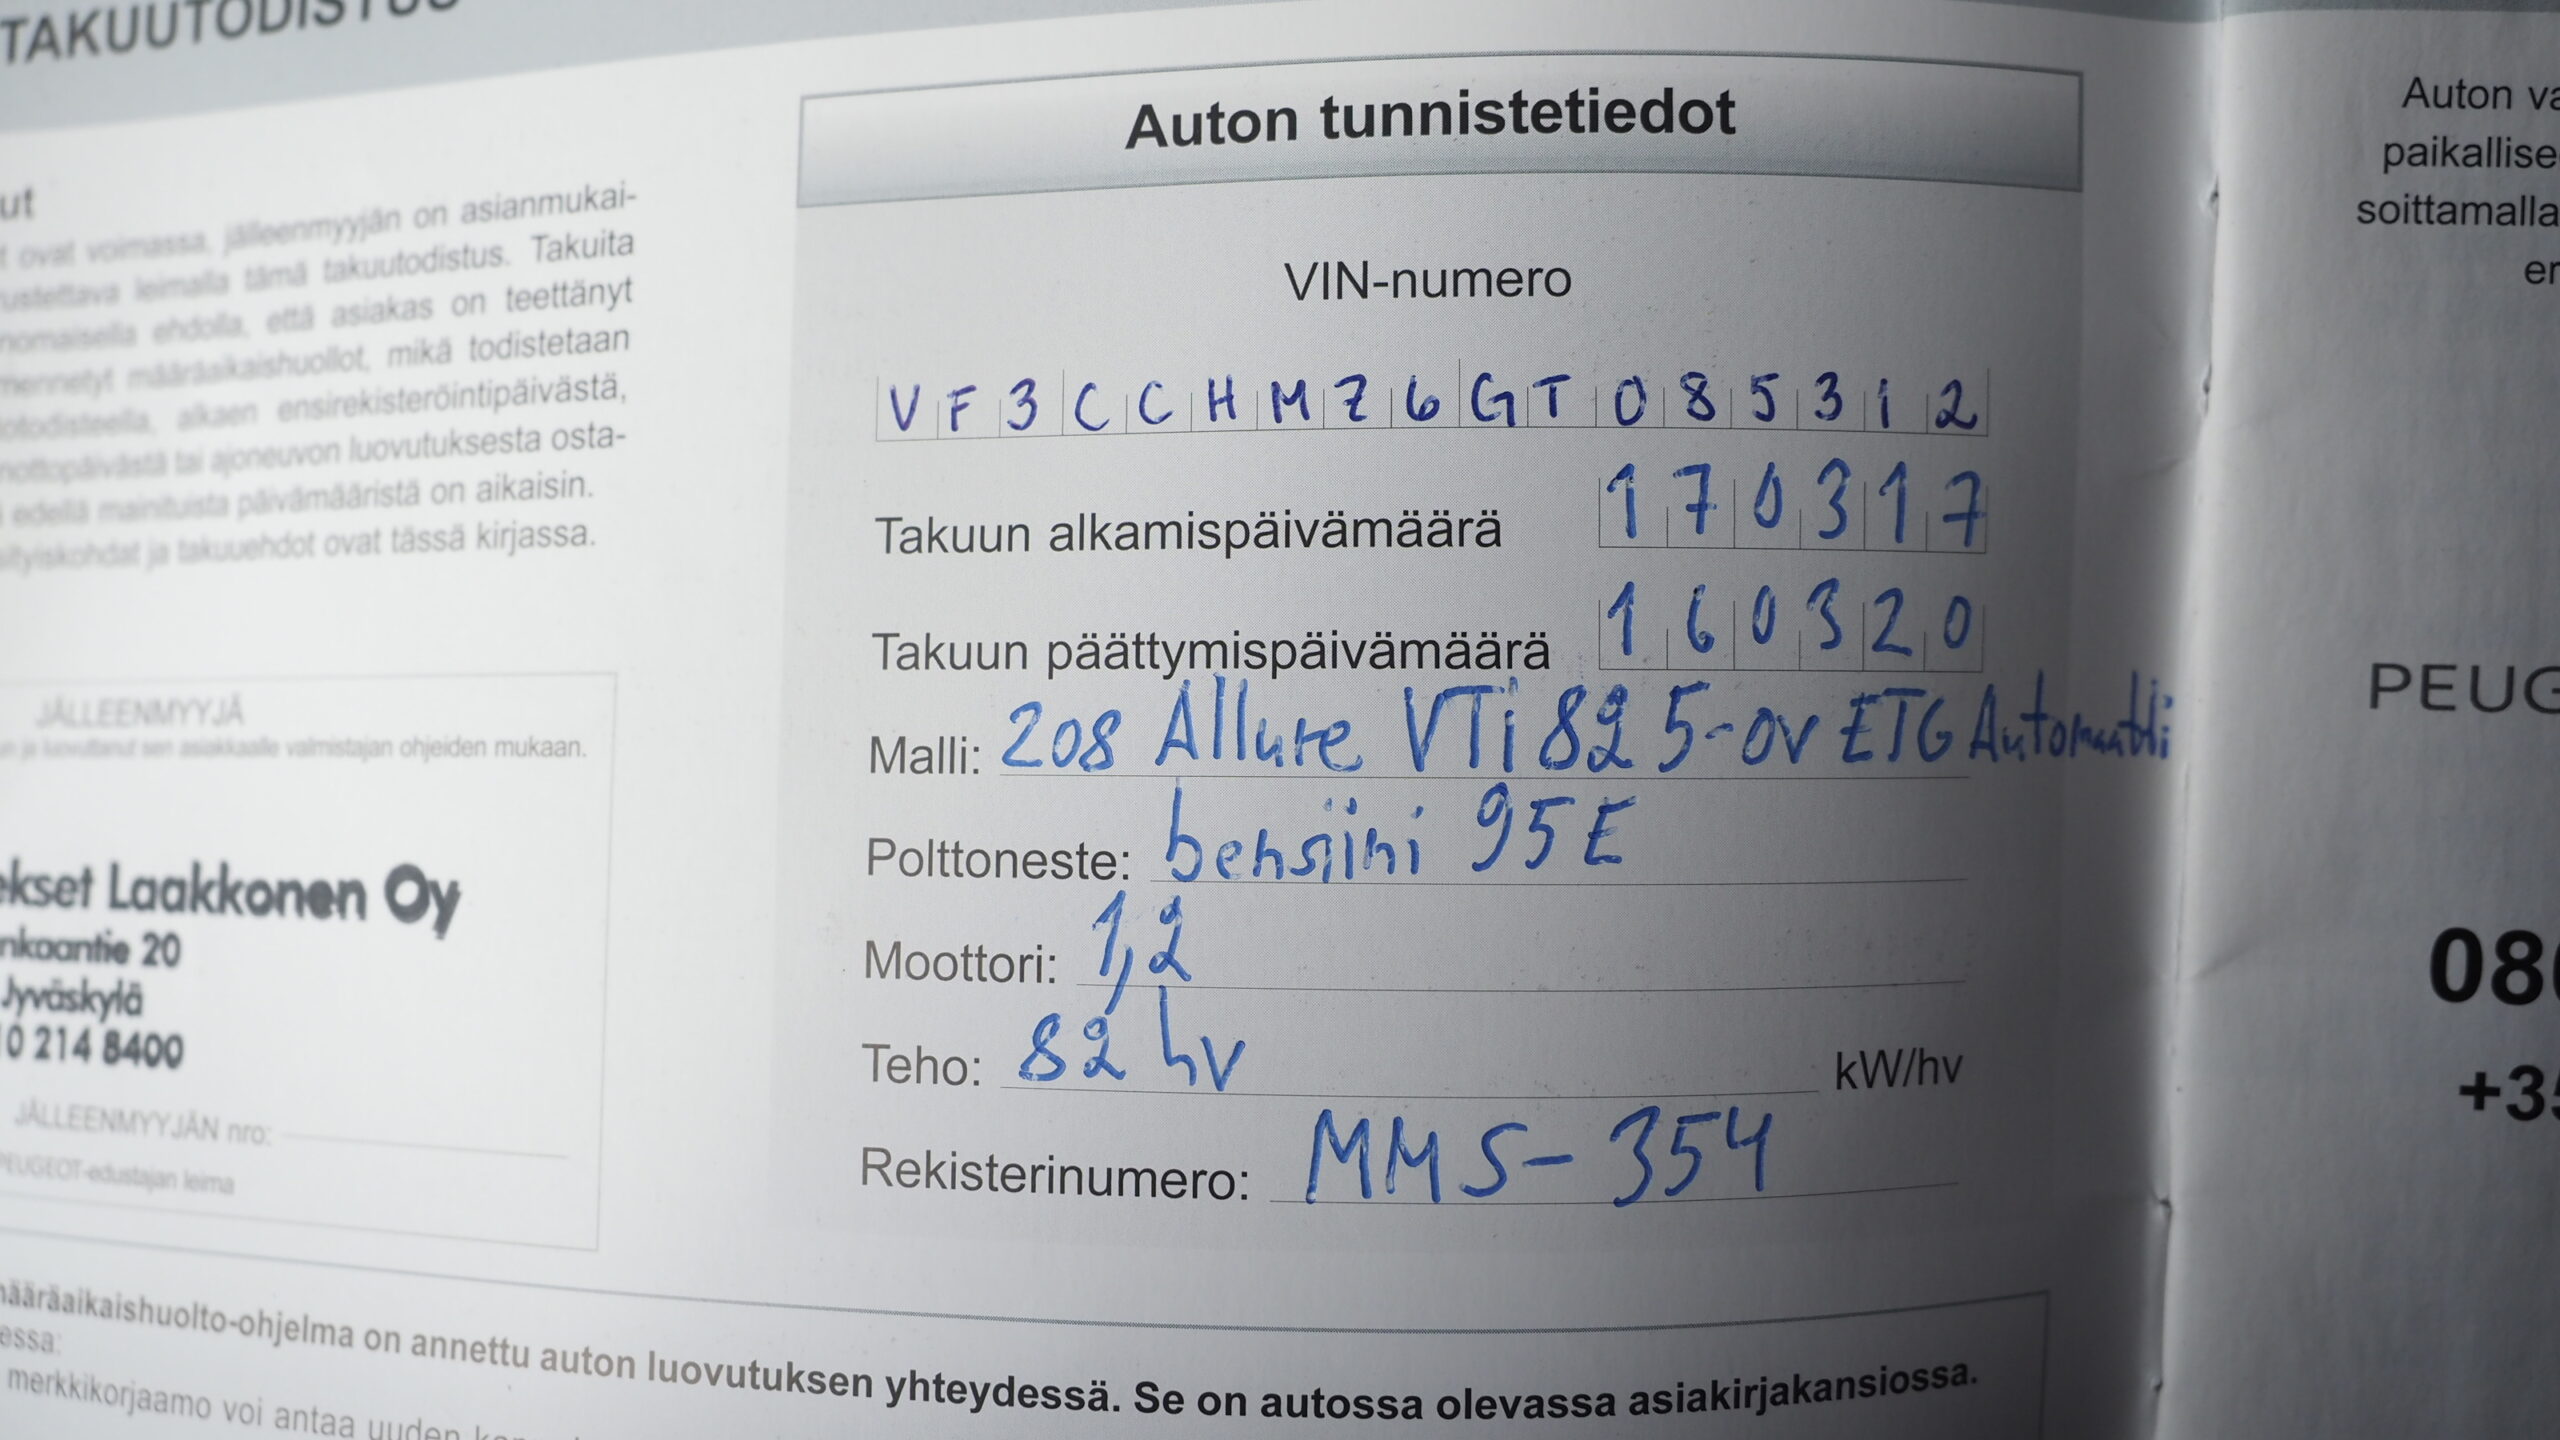 TAKUUTODISTUS
ut
t ovat voimassa, jälleenmyyjän on asianmukai-
rustettava leimalla tämä takuutodistus. Takuita
nomaisella ehdolla, että asiakas on teettänyt
mennetyt määräaikaishuollot, mikä todistetaan
totodisteella, alkaen ensirekisteröintipäivästä,
nottopäivästä tai ajoneuvon luovutuksesta osta-
edellä mainituista päivämääristä on aikaisin.
sityiskohdat ja takuuehdot ovat tässä kirjassa.
JÄLLEENMYYJÄ
n ja luovuttanut sen asiakkaalle valmistajan ohjeiden mukaan.
ekset Laakkonen Oy
nkaantie 20
Jyväskylä
10 214 8400
JÄLLEENMYYJÄN nro:
PEUGEOT-edustajan leima
Auton tunnistetiedot
VIN-numero
VF3CCHMZ6GT085312
Takuun alkamispäivämäärä 170317
Takuun päättymispäivämäärä 160320
Malli: 208 Allure VTi 82 5-ov ETG Automaatti
Polttoneste: bensiini 95E
Moottori: 1,2
Teho: 82 hv kW/hv
Rekisterinumero: MMS-354
määräaikaishuolto-ohjelma on annettu auton luovutuksen yhteydessä. Se on autossa olevassa asiakirjakansiossa.
essa:
merkkikorjaamo voi antaa uuden
Auton va
paikallise
soittamalla
er
PEUG
080
+35